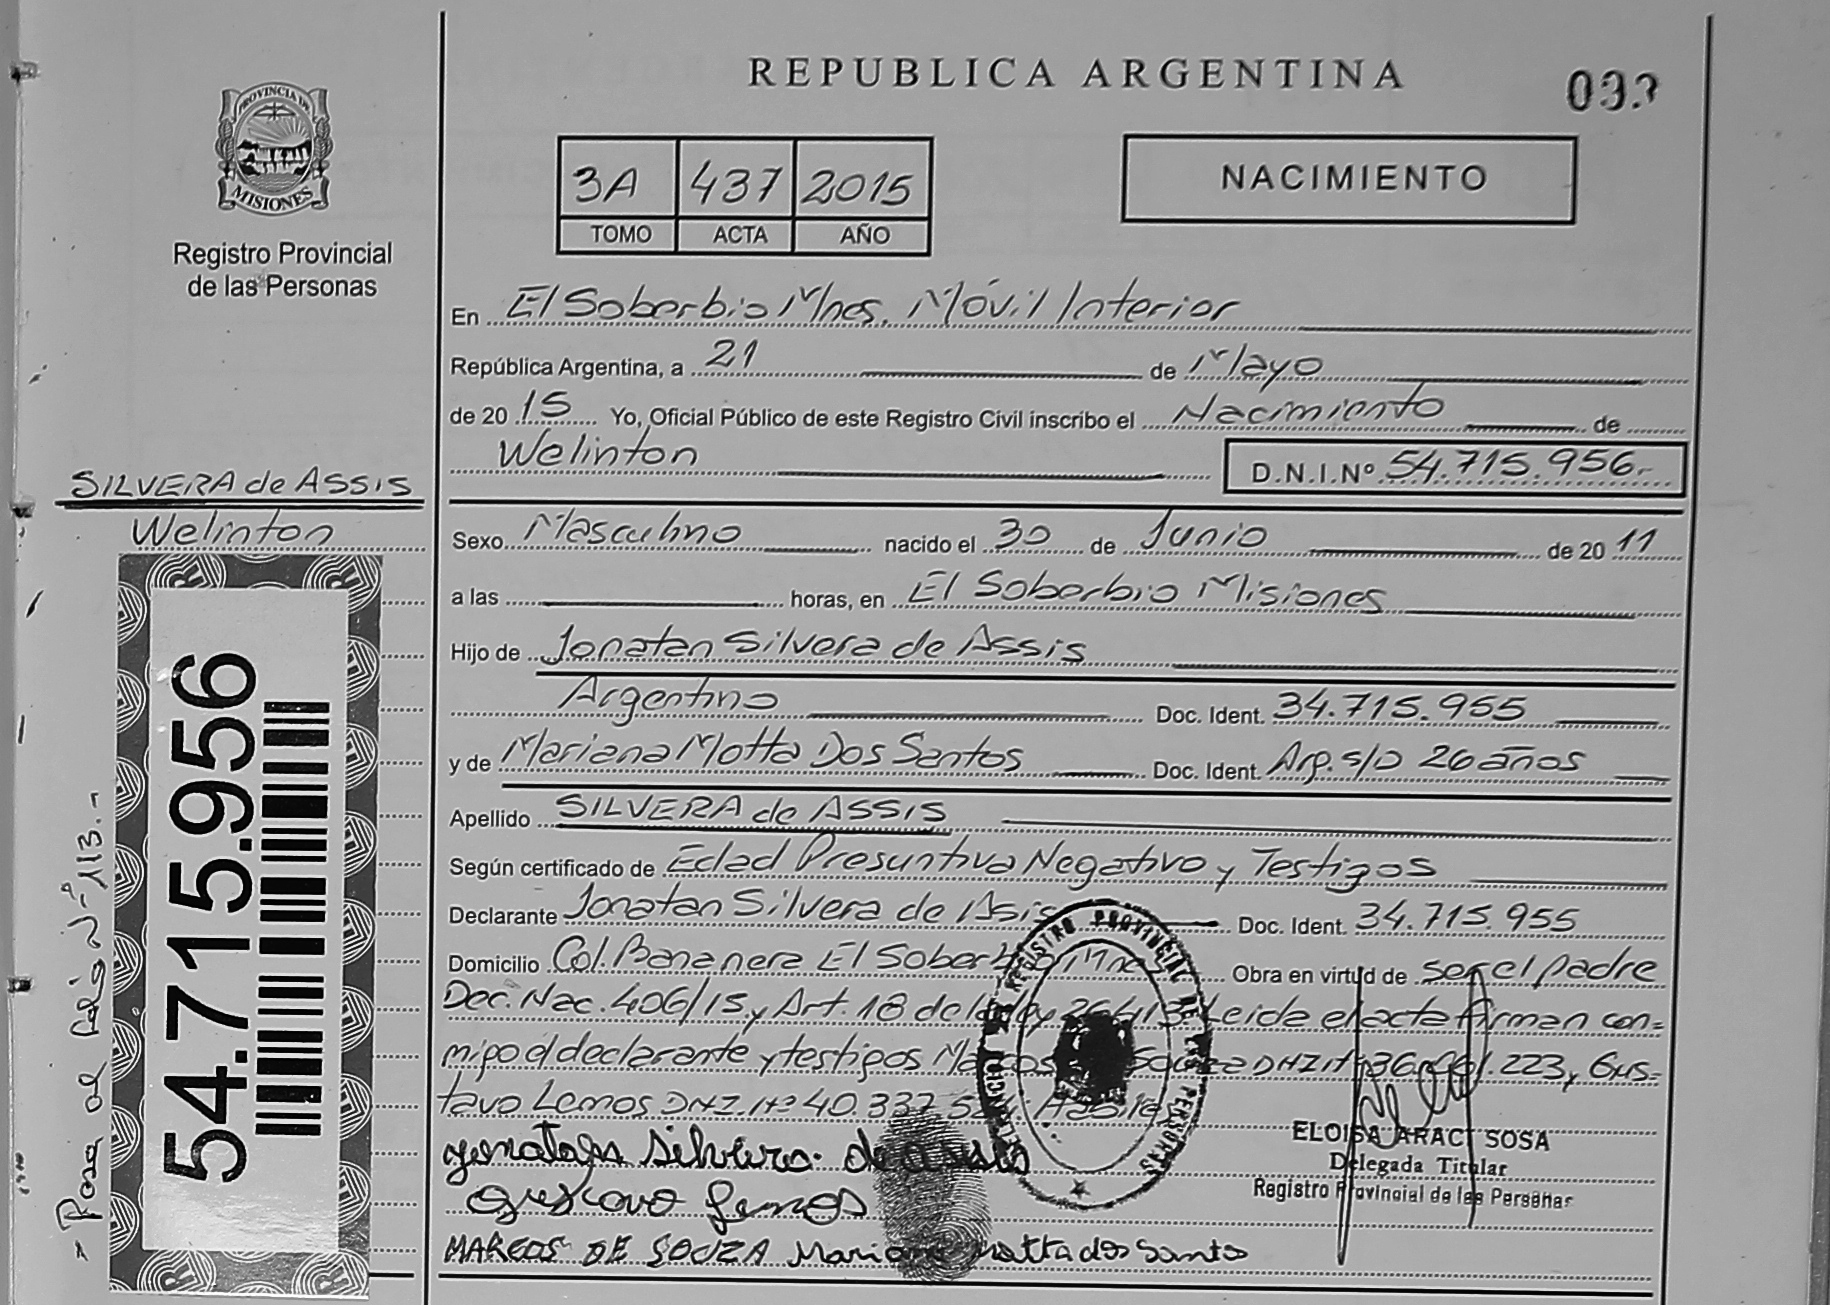 REPUBLICA ARGENTINA
PROVINCIA DE
MISIONES
Registro Provincial
de las Personas
3A 437 2015
TOMO ACTA AÑO
NACIMIENTO
En El Soberbio Mnes. Móvil Interior
República Argentina, a 21 de Mayo
de 20 15 Yo, Oficial Público de este Registro Civil inscribo el Nacimiento de
Welinton D.N.I.Nº 54.715.956.-
SILVERA de ASSIS
Welinton
Sexo Masculino nacido el 30 de Junio de 20 11
a las horas, en El Soberbio Misiones
Hijo de Jonatan Silvera de Assis
Argentino Doc. Ident. 34.715.955
y de Mariana Motta Dos Santos Doc. Ident. Arg. s/D 26 años
Apellido SILVERA de ASSIS
Según certificado de Edad Presuntiva Negativo y Testigos
Declarante Jonatan Silvera de Asis Doc. Ident. 34.715.955
Domicilio Col. Bananera El Soberbio Mnes Obra en virtud de ser el padre
Dec. Nac. 406/15 y Art. 18 de la Ley Leida el acta firman con=
migo el declarante y testigos DNI Nº 223, Gus=
tavo Lemos DNI. Nº 40.337.
Silveira de
Gustavo Lemos
MARCOS DE SOUZA Mariana Motta dos Santo
REGISTRO PROVINCIAL DE LAS PERSONAS
ELOISA ARACI SOSA
Delegada Titular
Registro Provincial de las Personas
54.715.956
- Pasa al Fólio Nº 113.-